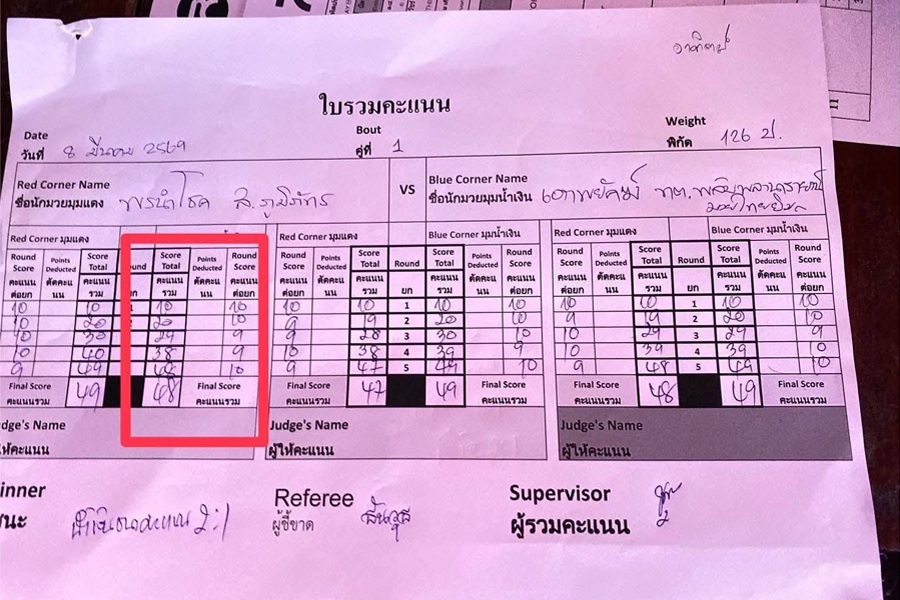 อาทิตย์
ใบรวมคะแนน
Date
วันที่ 8 มีนาคม 2569
Bout
คู่ที่ 1
Weight
พิกัด 126 ป.
Red Corner Name
ชื่อนักมวยมุมแดง พรนำโชค ส.ภูมิภัทร
VS
Blue Corner Name
ชื่อนักมวยมุมน้ำเงิน
Red Corner มุมแดง
Red Corner มุมแดง Blue Corner มุมน้ำเงิน
Blue Corner มุมน้ำเงิน
Round Score Points Deducted Score Total Round Score Total Points Deducted Round Score
คะแนนต่อยก ตัดคะแนน คะแนนรวม ยก คะแนนรวม ตัดคะแนน คะแนนต่อยก
10 10 1 10 10
10 20 20 10
10 30 29 9
10 40 38 9
9 49 48 10
Final Score 49 48 Final Score
คะแนนรวม คะแนนรวม
Judge's Name
ผู้ให้คะแนน
Round Score Points Deducted Score Total Round Score Total Points Deducted Round Score
คะแนนต่อยก ตัดคะแนน คะแนนรวม ยก คะแนนรวม ตัดคะแนน คะแนนต่อยก
10 10 1 10 10
9 19 2 20 10
9 28 3 30 10
10 38 4 39 9
9 47 5 49 10
Final Score 47 49 Final Score
คะแนนรวม คะแนนรวม
Judge's Name
ผู้ให้คะแนน
Round Score Points Deducted Score Total Round Score Total Points Deducted Round Score
คะแนนต่อยก ตัดคะแนน คะแนนรวม ยก คะแนนรวม ตัดคะแนน คะแนนต่อยก
10 10 1 10 10
9 19 2 20 10
10 29 3 29 9
10 39 4 39 10
9 48 5 49 10
Final Score 48 49 Final Score
คะแนนรวม คะแนนรวม
Judge's Name
ผู้ให้คะแนน
inner
นะ 2:1
Referee
ผู้ชี้ขาด
Supervisor
ผู้รวมคะแนน